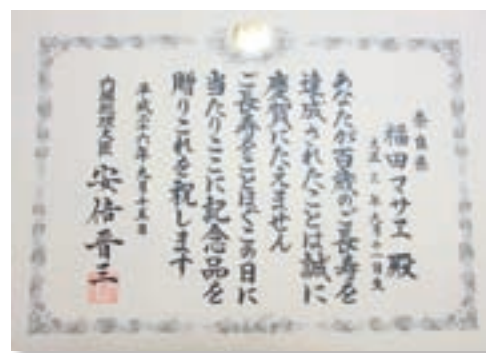 奈良県
福田マサエ 殿
大正三年九月十一日生
あなたが百歳のご長寿を
達成されたことは誠に
慶賀にたえません
ご長寿をことほぐこの日に
当たりここに記念品を
贈りこれを祝します
平成二十六年九月十五日
内閣総理大臣 安倍晋三